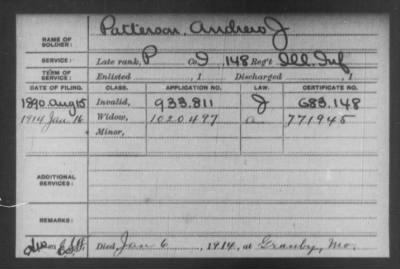 NAME OF SOLDIER: Patterson, Andrew J
SERVICE: Late rank, P Co. I, 148 Reg't Ill. Inf
TERM OF SERVICE: Enlisted , 1 Discharged , 1
DATE OF FILING. CLASS. APPLICATION NO. LAW. CERTIFICATE NO.
1890. Aug 15 Invalid, 933.811 J 683.148
1914 Jan 16 Widow, 1020497 a 771945
Minor,
ADDITIONAL SERVICES:
REMARKS:
Died Jan 6, 1914, at Granby, Mo.